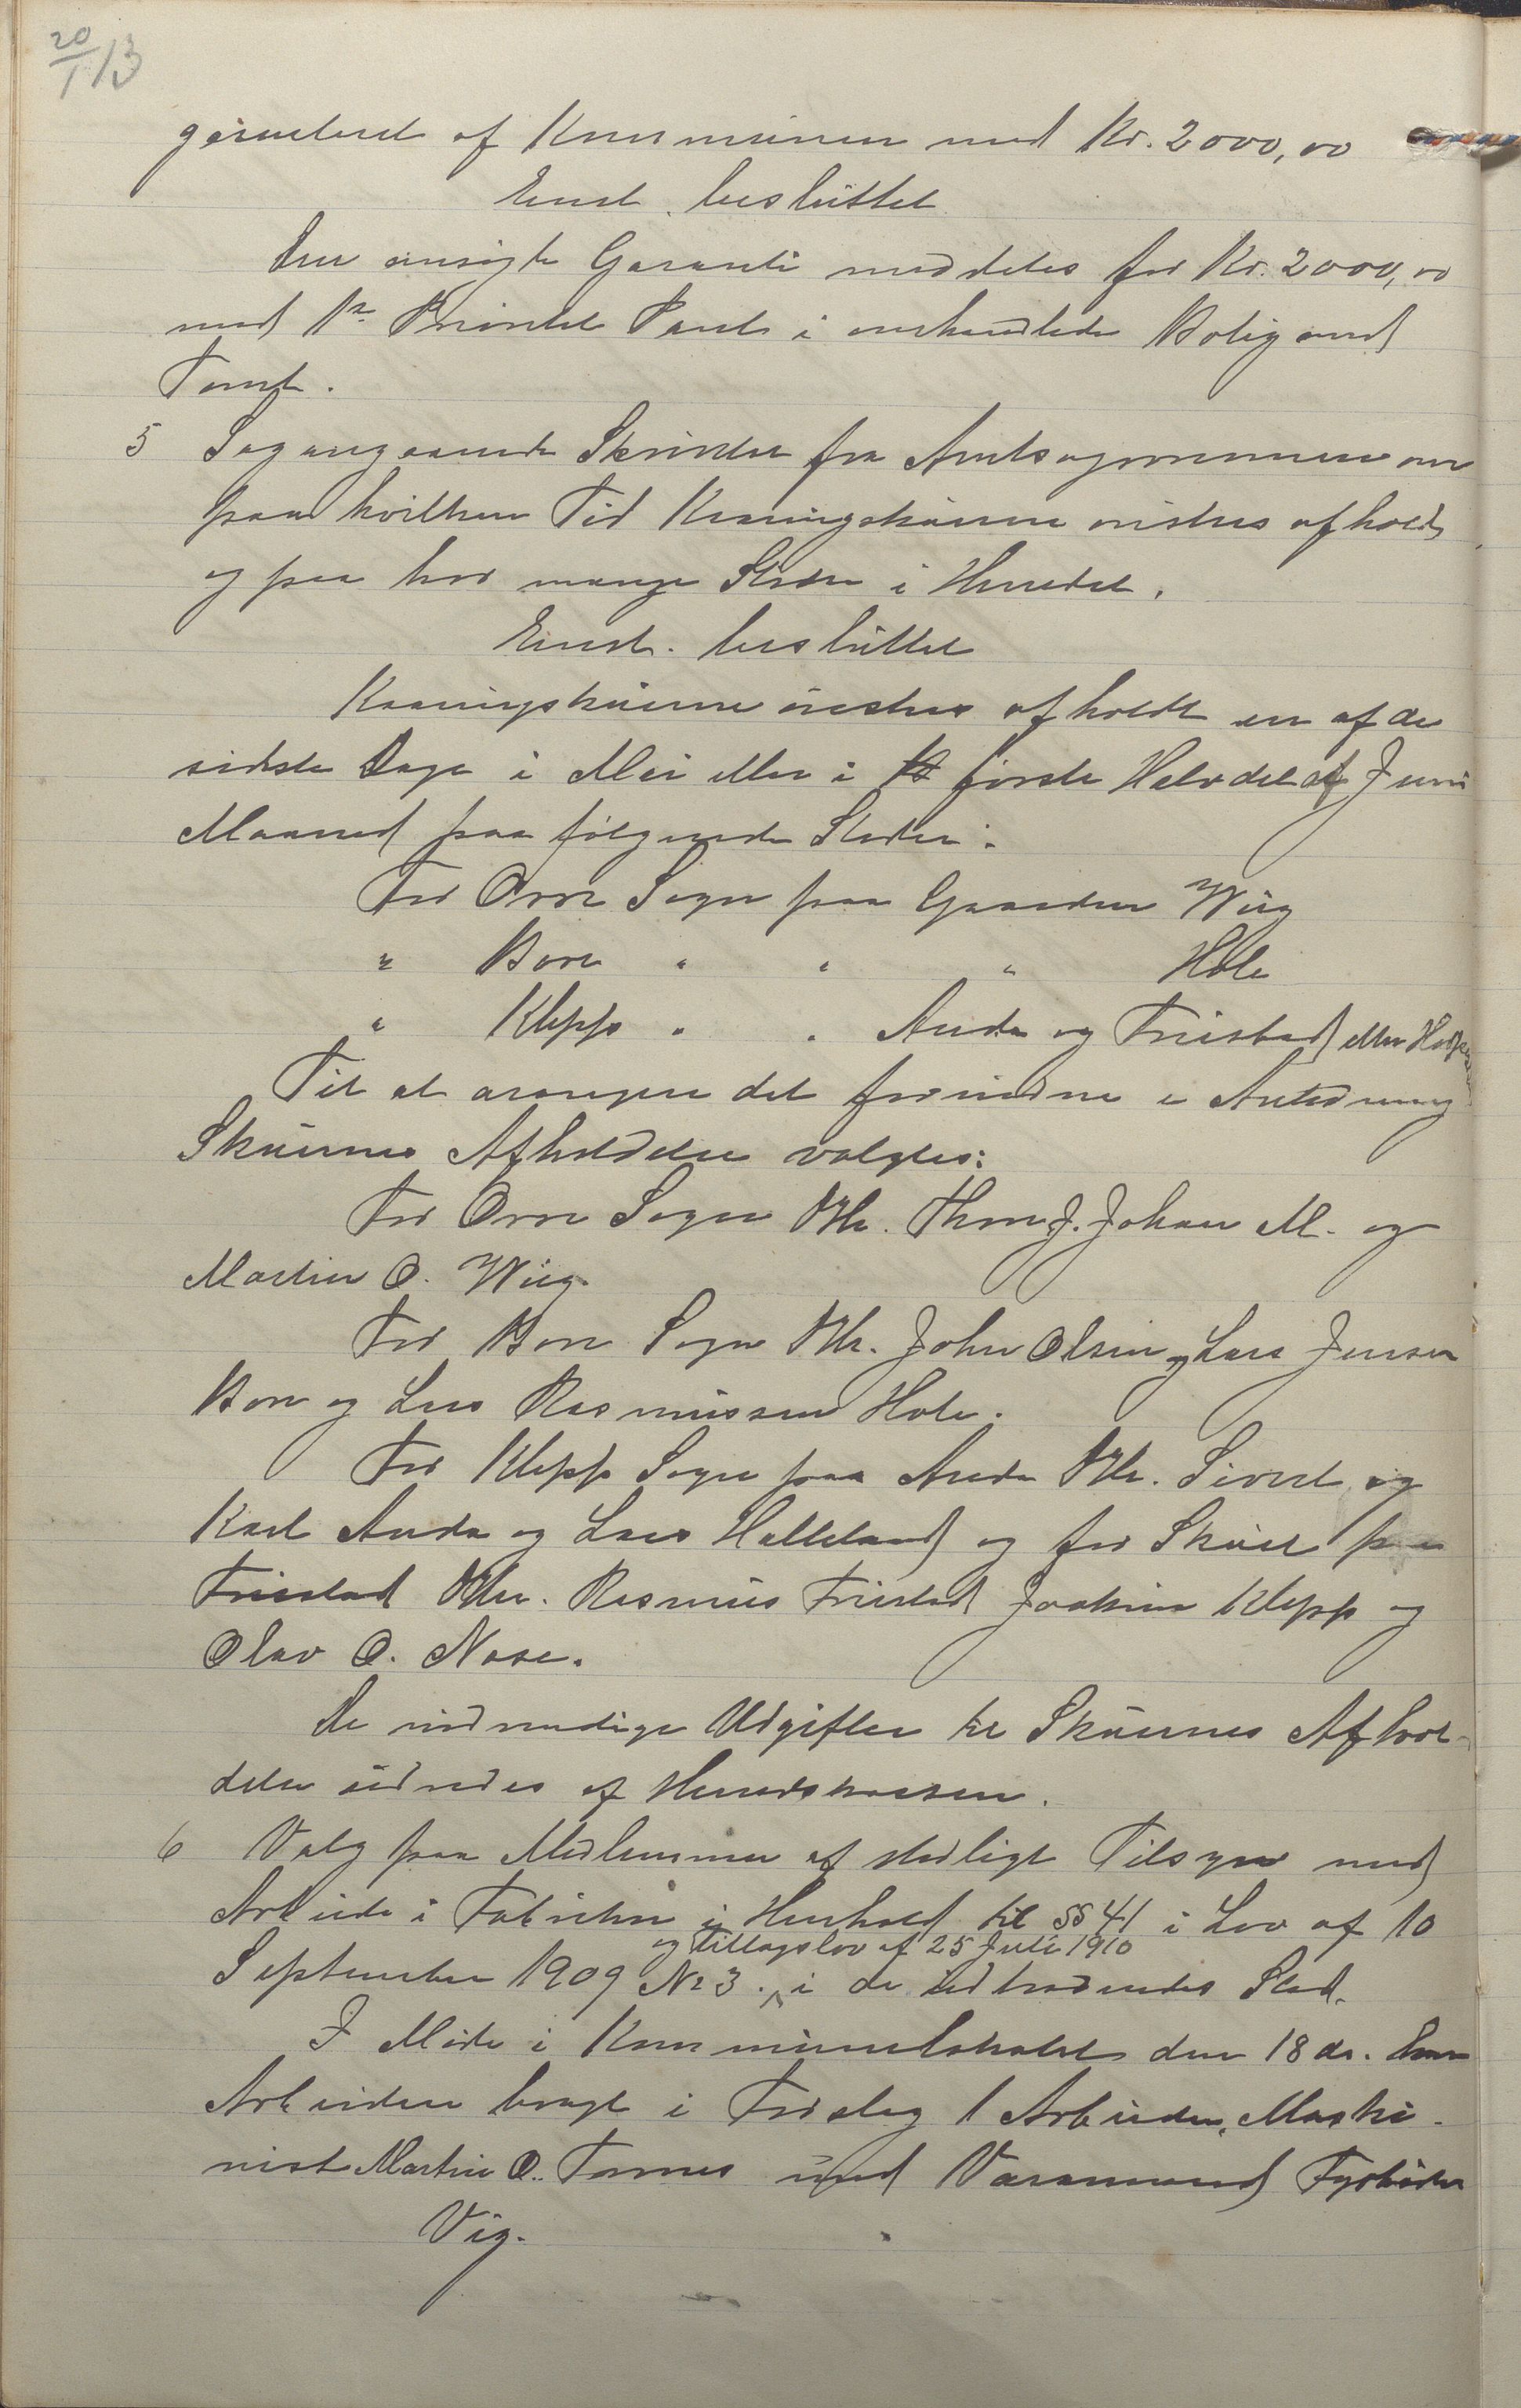 20/1 13
garanteret af Kommunen med Kr. 2000,00
Enst. besluttet
Den ansøgte Garanti meddeles for Kr. 2000,00
mod 1ste Prioritet Pant i omhandlede Bolig med
Tomt.
5 Sag angaaende Skrivelse fra Amtsagronomen om
paa hvilken Tid Kaaringskuerne ønskes afholdt
og paa hvor mange Steder i Herredet.
Enst. besluttet
Kaaringskuerne ønskes afholdt en af de
sidste Dage i Mai eller i første Halvdel af Juni
Maaned paa følgende Steder:
For Orre Sogn paa Gaarden Wiig
" Bore " " " Hole
" Klepp " " Anda og Friestad eller
Til at arangere det fornødne i Anledning
Skuernes Afholdelse valgtes:
For Orre Sogn Hr. Thore J. Johan M. og
Martin O. Wiig.
For Bore Sogn Hr. John Olsen og Lars Jensen
Bore og Lars Rasmussen Hole.
For Klepp Sogn paa Anda Hr. Sivert og
Karl Anda og Lars Halleland og for Skuet paa
Friestad Hr. Rasmus Friestad Joakim Klepp og
Olav O. Nase.
De nødvendige Udgifter til Skuernes Afhol-
delse udredes af Herredskassen.
6 Valg paa Medlemmer af stedligt Tilsyn med
Arbeide i Fabriker i Henhold til §§ 41 i Lov af 10
og Tillægslov af 25 Juli 1910
September 1909 No 3. i de udtrædendes Sted.
I Møde i Kommunelokalet den 18 ds. har
Arbeidere bragt i Forslag 1 Arbeider, Maski-
nist Martin O. Tornes med Varamand Fyrbøder
Vig.